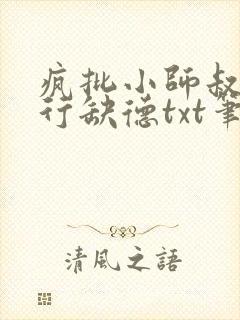 疯批小師叔
行缺德txt筆
清風之語